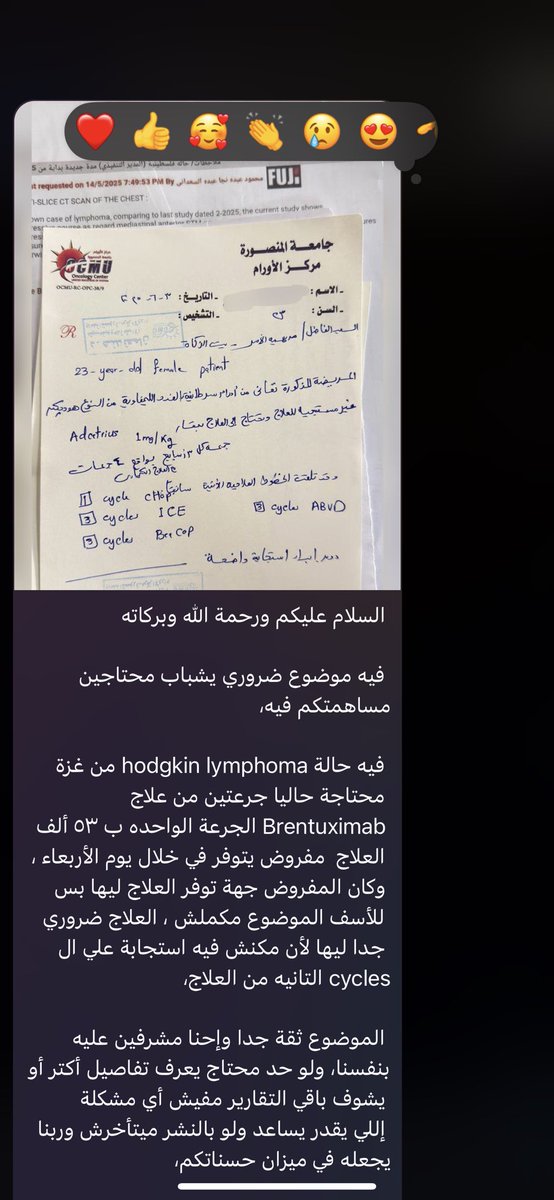 ملاحظات/ حالة فلسطينية (المدير التنفيذي) مدة جديدة بداية من
st requested on 14/5/2025 7:49:53 PM By محمود عبده نجا عبده السعداني
FUJI
TI-SLICE CT SCAN OF THE CHEST :
own case of lymphoma, comparing to last study dated 2-2025, the current study shows
جامعة المنصورة
مركز الأورام
OCMU
Oncology Center
OCMU-RC-OPC-38/9
- الاسم :
- التاريخ :
- السن : ٢٣
- التشخيص :
R
السيد الفاضل / مدير بيت الزكاة
23-year-old female patient
المريضة المذكورة تعانى من أورام سرطانية بالغدد الليمفاوية من النوع هودجكين
غير مستجيبة للعلاج وتحتاج إلى العلاج بعقار
Adcetrius 1mg/kg
جرعة كل ٣ أسابيع بواقع ٤ جرعات
وقد تلقت الخطوط العلاجية الآتية سابقا
1 cycle CHOP
3 cycles ICE
3 cycles ABVD
3 cycles BeaCOP
دون إبداء استجابة واضحة.
السلام عليكم ورحمة الله وبركاته
فيه موضوع ضروري يشباب محتاجين
مساهمتكم فيه،
فيه حالة hodgkin lymphoma من غزة
محتاجة حاليا جرعتين من علاج
Brentuximab الجرعة الواحده ب ٥٣ ألف
العلاج مفروض يتوفر في خلال يوم الأربعاء ،
وكان المفروض جهة توفر العلاج ليها بس
للأسف الموضوع مكملش ، العلاج ضروري
جدا ليها لأن مكنش فيه استجابة علي ال
cycles التانيه من العلاج،
الموضوع ثقة جدا وإحنا مشرفين عليه
بنفسنا، ولو حد محتاج يعرف تفاصيل أكتر أو
يشوف باقي التقارير مفيش أي مشكلة
إللي يقدر يساعد ولو بالنشر ميتأخرش وربنا
يجعله في ميزان حسناتكم،